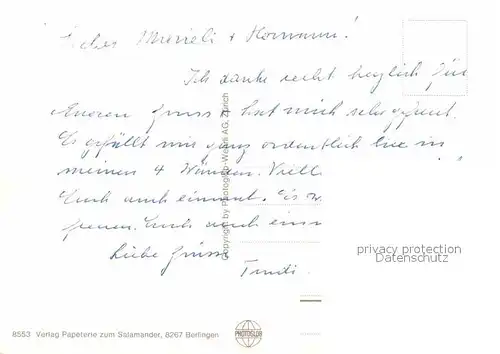 Liebes Murieli + Hermann!
Ich danke recht herzlich für
Eueren Gruss hat mich sehr gefreut.
Es gefällt mir ganz ordentlich hier in
meinen 4 Wänden. Viell.
Euch auch einmal. Es w
freuen. Euch auch ein
Liebe Grüsse
Trudi.
Copyright by Photoglob-Wehrli AG, Zürich
privacy protection
Datenschutz
8553 Verlag Papeterie zum Salamander, 8267 Berlingen
PHOTOGLOB